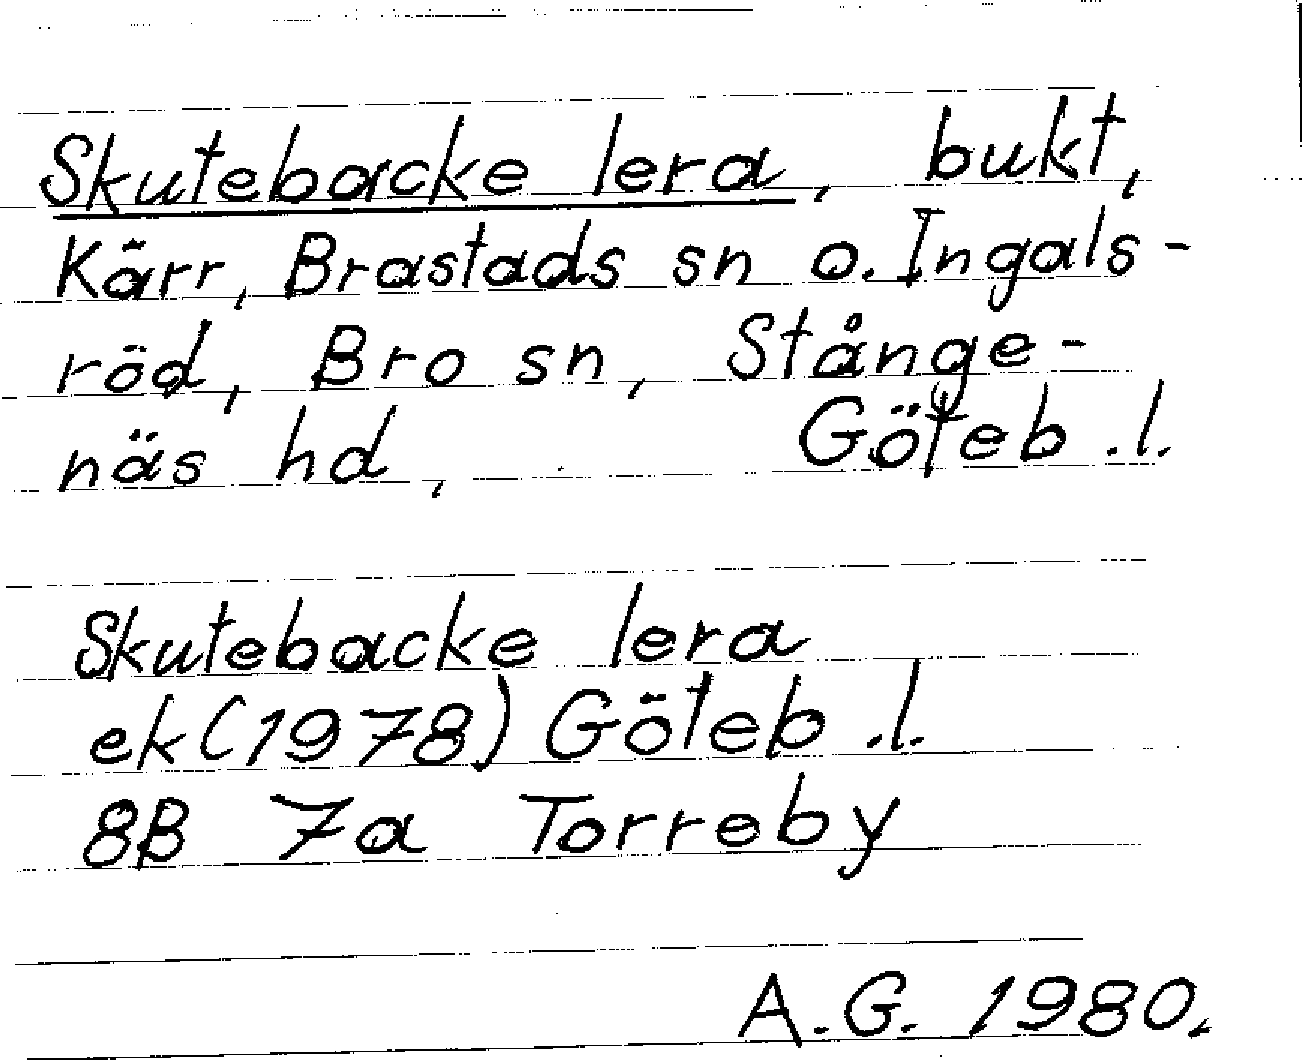 Skutebacke lera, bukt,
Kärr, Brastads sn o. Ingals-
röd, Bro sn, Stånge-
näs hd, Göteb.l.
Skutebacke lera
ek(1978) Göteb.l.
8B 7a Torreby
A.G. 1980.